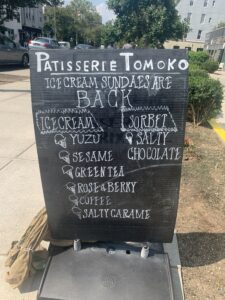 PATISSERIE TOMOKO
ICE CREAM SUNDAES ARE
BACK
ICECREAM
YUZU
SESAME
GREEN TEA
ROSE & BERRY
COFFEE
SALTY CARAME
SORBET
SALTY
CHOCOLATE